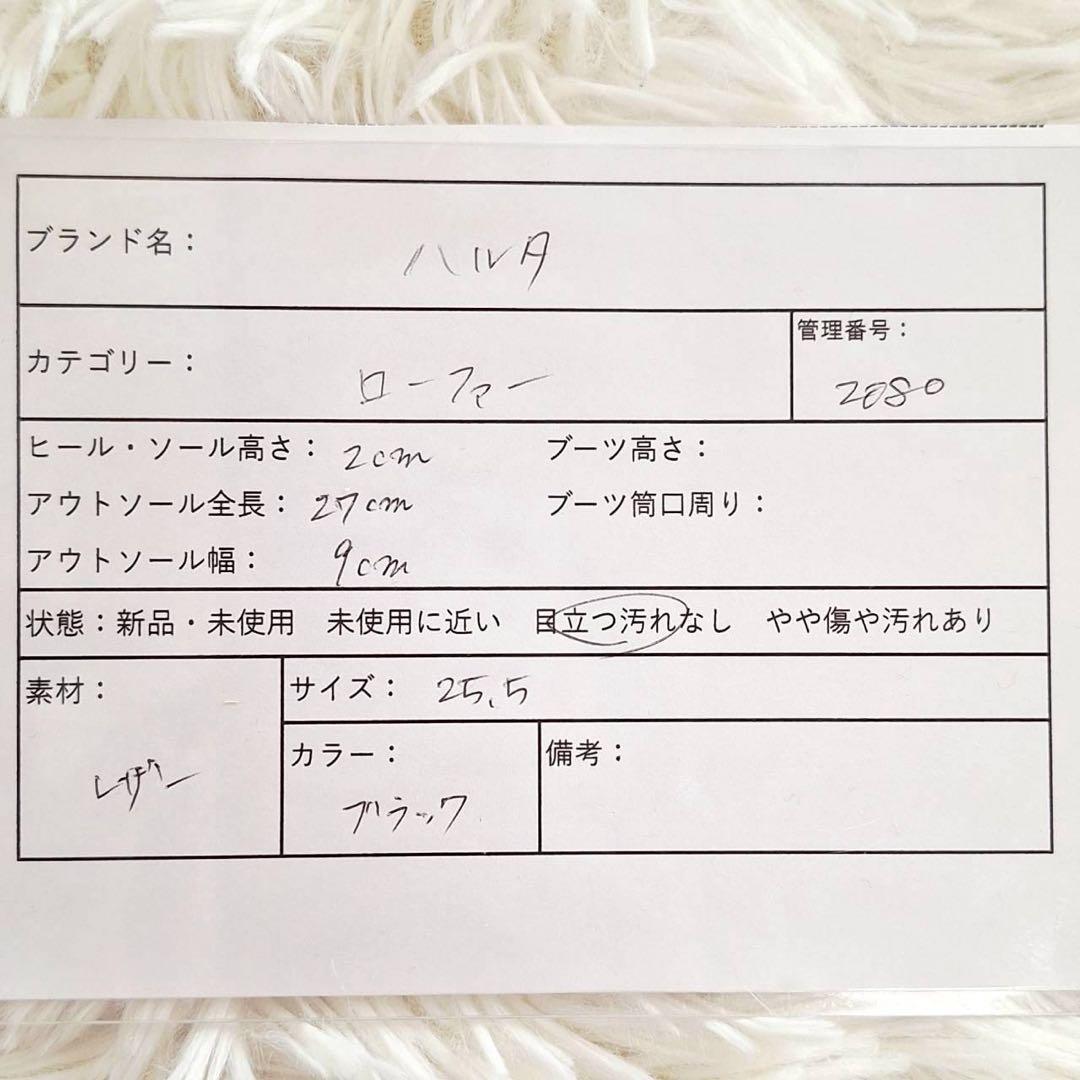 ブランド名： ハルタ
カテゴリー： ローファー
管理番号： 2080
ヒール・ソール高さ： 2cm ブーツ高さ：
アウトソール全長： 27cm ブーツ筒口周り：
アウトソール幅： 9cm
状態：新品・未使用 未使用に近い 目立つ汚れなし やや傷や汚れあり
素材： レザー
サイズ： 25.5
カラー： ブラック
備考：